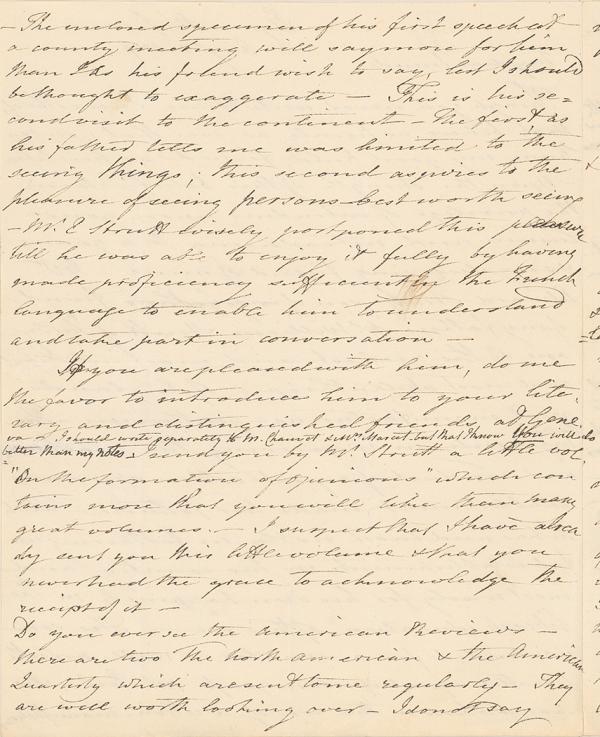 - The enclosed specimen of his first speech at
a county meeting will say more for him
than I as his friend wish to say, lest I should
be thought to exaggerate - This is his se=
cond visit to the continent - the first as
his father tells me was limited to the
seeing things; this second aspires to the
pleasure of seeing persons best worth seeing
- Mr. E Strutt wisely postponed this pleasure
till he was able to enjoy it fully by having
made proficiency sufficient in the French
language to enable him to understand
and take part in conversation -
If you are pleased with him, do me
the favor to introduce him to your lite-
rary and distinguished friends at Gene
va - I should write separately to M. & Mrs. Marcet but that I know you will do
better than my notes - I send you by Mr. Strutt a little vol.
"On the formation of Opinions" which con
tains more that you will like than many
great volumes. - I suspect that I have alrea
dy sent you this little volume & that you
never had the grace to acknowledge the
receipt of it -
Do you ever see the American Reviews -
there are two The North American & the American
Quarterly which are sent to me regularly - They
are well worth looking over - I do not say